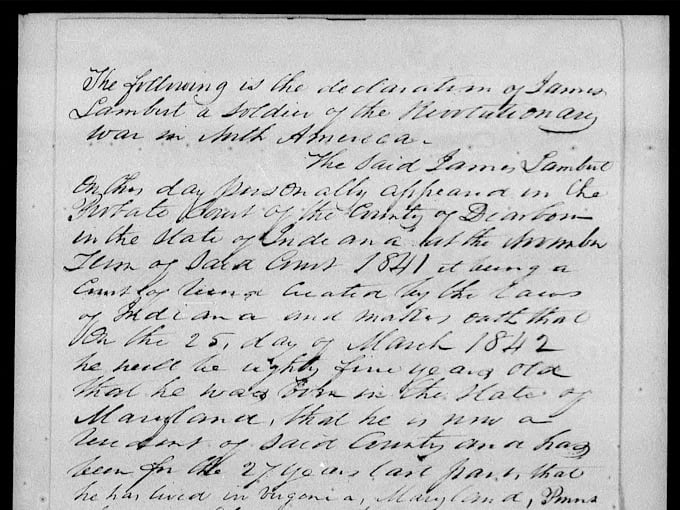 The following is the declaration of James
Lambert a Soldier of the Revolutionary
War in North America.
The Said James Lambert
On this day personally appeared in the
Probate Court of the County of Dearborn
in the State of Indiana at the November
Term of Said Court 1841 it being a
Court of Record Created by the Laws
of Indiana and makes oath that
On the 25, day of March 1842
he will be eighty five years old
that he was born in the State of
Maryland, that he is now a
Resident of Said County and has
been for the 27 years last past, that
he has lived in Virgonia, Maryland, Penns